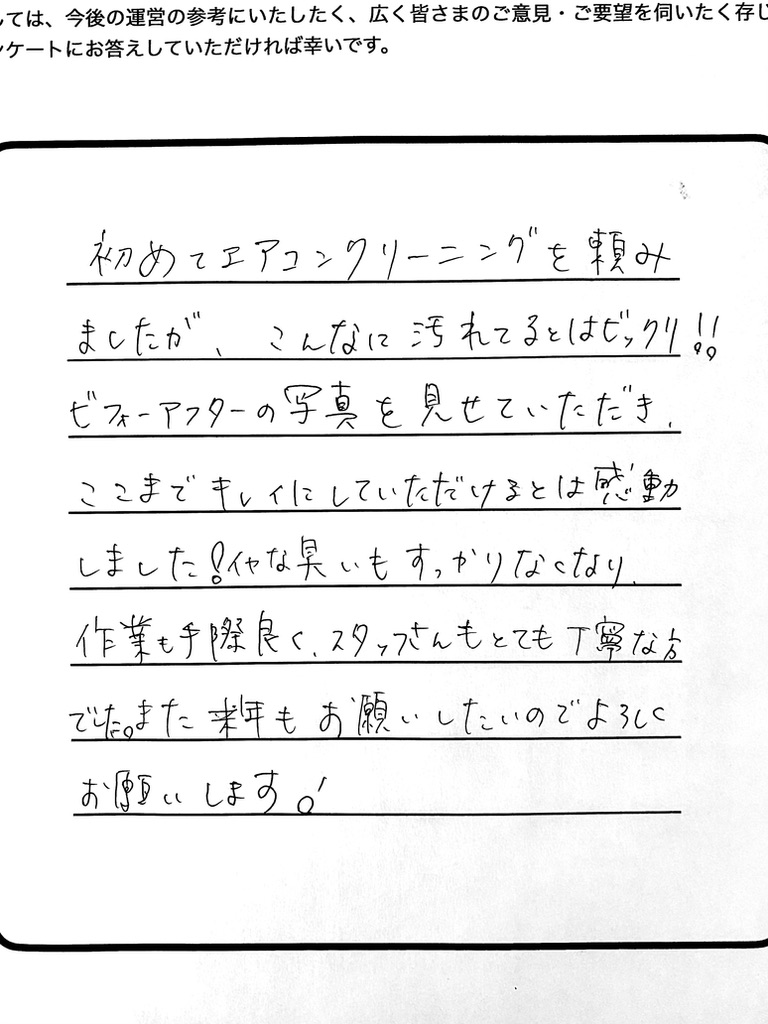 しては、今後の運営の参考にいたしたく、広く皆さまのご意見・ご要望を伺いたく存じ
ンケートにお答えしていただければ幸いです。
初めてエアコンクリーニングを頼み
ましたが、こんなに汚れてるとはビックリ!!
ビフォーアフターの写真を見せていただき、
ここまでキレイにしていただけるとは感動
しました!イヤな臭いもすっかりなくなり、
作業も手際良く、スタッフさんもとても丁寧な方
でした。また来年もお願いしたいのでよろしく
お願いします!